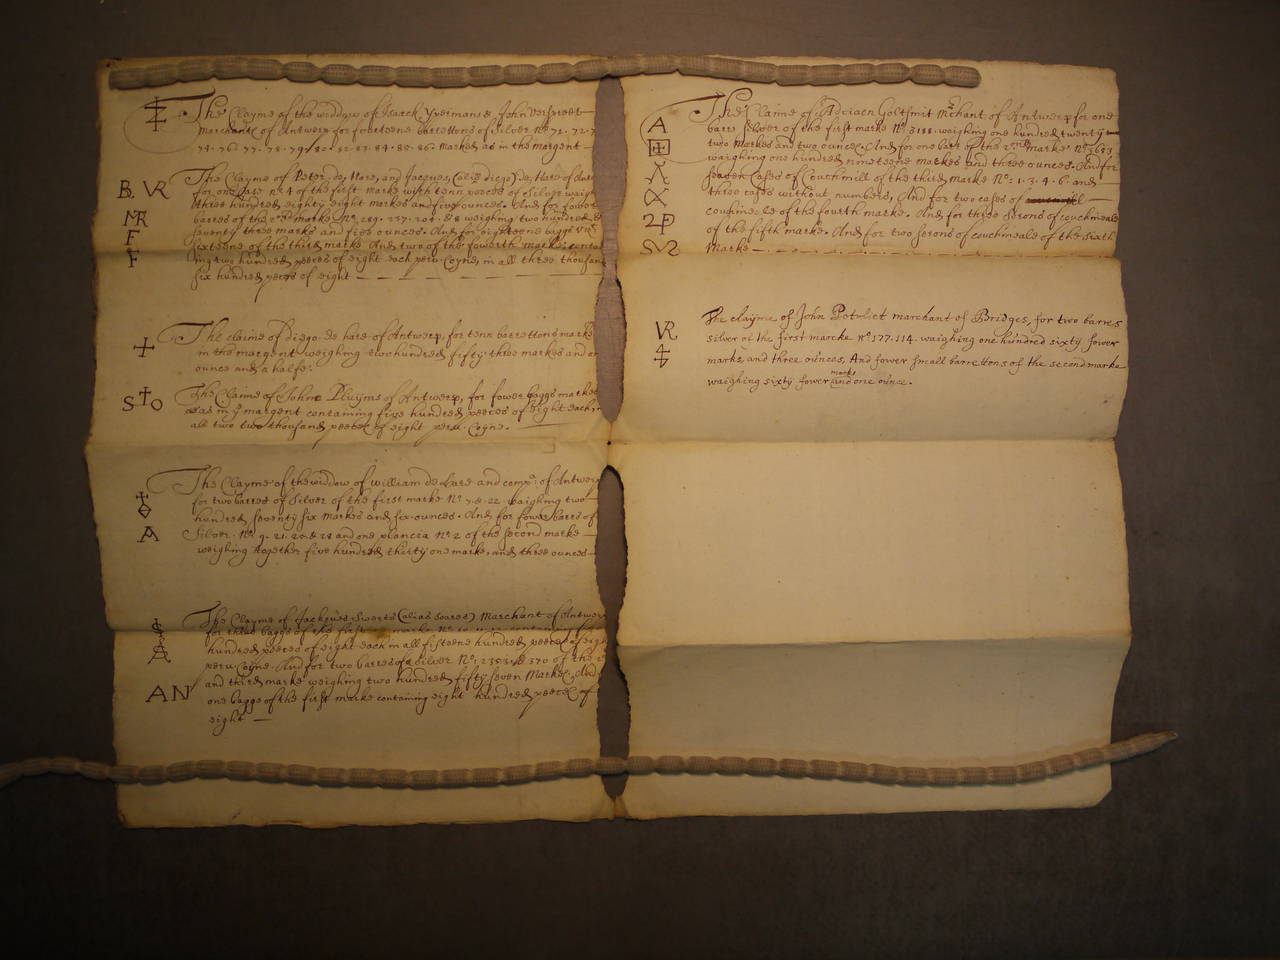 The Clayme of the widdow of Isaack Yvermans & John Verspreet
Merchants of Antwerp for foorteene barrettons of Silver No 71. 72. 7
74. 76. 77. 78. 79. 80. 82. 83. 84. 85. 86. Marked as in the margent
B VR The Clayme of Peter de Hare, and Jacques (alis diego) de Hare of
for one barr No 4 of the first Marke with tenn peeces of Silver waigh
three hundred eighty eight markes and five ounces. And for fower
MR barres of the 2nd Marke No 289. 237. 204. & 8 weighing two hundred &
F seventy three marks and five ounces. And for eighteene baggs vizt
sixteene of the third marke And two of the fowerth marke: contai
F ing two hundred peeces of eight each peru. Coyne, in all three thousan
six hundred peeces of eight
The claime of Diego de hare of Antwerp, for tenn barrettons marke
in the margent weighing two hundred fifty three markes and on
ounce and a halfe.
STO The Claime of John Pluyms of Antwerp, for fower baggs marked
as in my margent containing five hundred peeces of eight each, in
all two thousand peeces of eight peru. Coyne.
The Clayme of the widdow of william de Lare and compa: of Antwerp
for two barres of Silver of the first marke No 7. & 22. waighing two
hundred seventy six Markes and six ounces. And for fower barrs of
A Silver No 9. 21. 25. & 28 and one plancia No 2 of the second marke
weighing together five hundred thirty one marke, and three ounces
The Clayme of Jackques Swerts (alias Soares) Marchant of Antwer
for three baggs of the first marke No containing
hundred peeces of eight each in all fifteene hundred peeces of eigh
peru. Coyne. And for two barres of Silver No. & 370 of the
and third marke weighing two hundred fifty seven Markes. And
AN one bagge of the first marke containing eight hundred peeces of
eight
The Claime of Adriaen Goltsmit Mchant of Antwerp for one
A barr Silver of the first marke No 3188. waighing one hundred twenty
two Markes and two ounces. And for one barr of the 2nd Marke No 653
waighing one hundred nineteene markes and three ounces. And for
seaven Cases of Couchmill of the third Marke No: 1. 3. 4. 6. and
three cases without numbers, And for two cases of
couchineale of the fourth marke. And for three Serons of couchineale
2P of the fifth marke. And for two serons of couchineale of the Sixth
SV2 Marke
The clayme of John Potvliet marchant of Bridges, for two barres
VR silver of the first marcke No 177. 114. waighing one hundred sixty fower
4 marks and three ounces, And fower small barrettons of the second marke
marks
waighing sixty fower and one ounce.